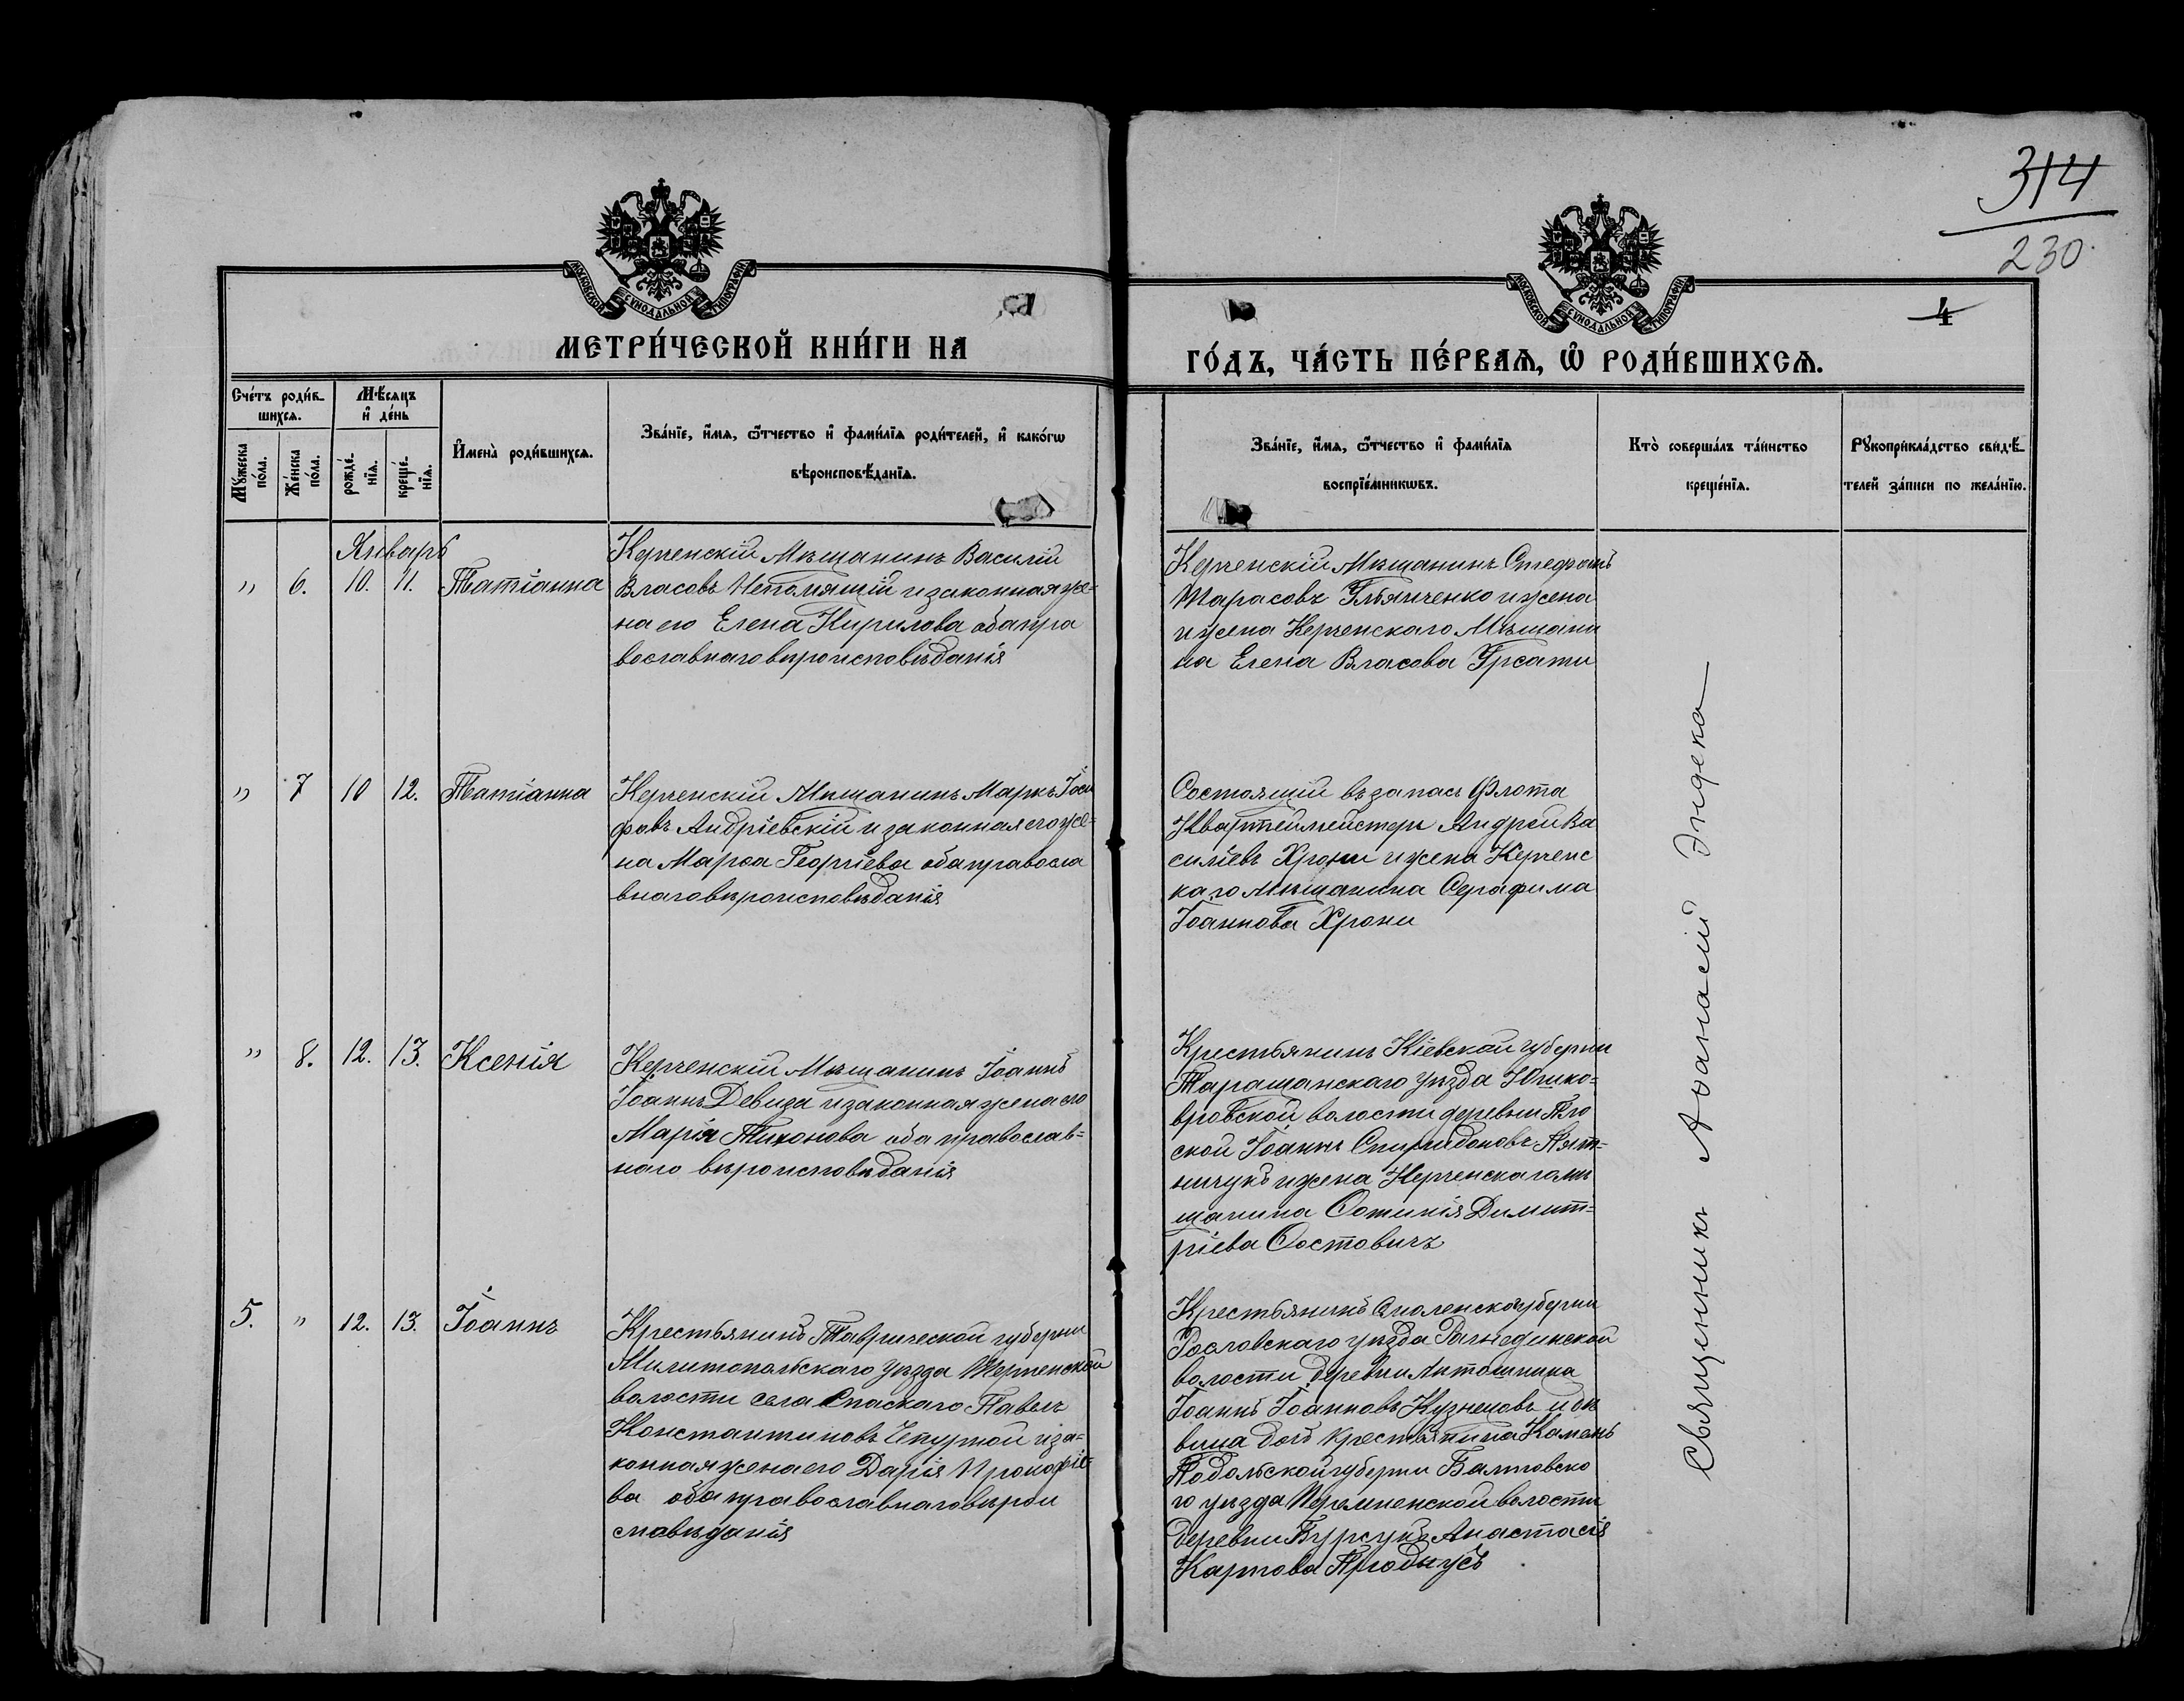 314
230
4
МОСКОВСКОЙ СѴНОДАЛЬНОЙ ТИПОГРАФІИ
МОСКОВСКОЙ СѴНОДАЛЬНОЙ ТИПОГРАФІИ
МЕТРИ́ЧЕСКОЙ КНИ́ГИ НА
ГО́ДЪ, ЧА́СТЬ ПЕ́РВАѦ, Ѡ РОДИ́ВШИХСѦ.
Сче́тъ роди́в-
шихсѧ.
Мꙋ́жеска по́ла.
Же́нска по́ла.
Мѣ́сѧцъ
и҆ де́нь
рожде́-
нїѧ.
креще́-
нїѧ.
И҆мена̀ роди́вшихсѧ.
Зва́нїе, и҆́мѧ, ѻ҆́тчество и҆ фами́лїѧ роди́телей, и҆ како́гѡ
вѣроисповѣ́данїѧ.
Зва́нїе, и҆́мѧ, ѻ҆́тчество и҆ фами́лїѧ
воспрїе́мникѡвъ.
Кто̀ соверша́лъ та́инство
креще́нїѧ.
Рꙋкоприкла́дство свидѣ́-
телей за́писи по жела́нїю.
Январь
" 6. 10. 11. Татіанна
Керченскій Мѣщанинъ Василій
Власовъ Непомнящій и законная же-
на его Елена Кирилова оба пра
вославнаго вѣроисповѣданія
Керченскій Мѣщанинъ Стефанъ
Тарасовъ и жена
и жена Керченскаго Мѣщани
на Елена Власова
" 7 10 12. Татіанна
Керченскій Мѣщанинъ Маркъ Іоси
фовъ Андріевскій и законная его же-
на Марѳа Георгіева оба правосла
внаго вѣроисповѣданія
Состоящій въ запасѣ Флота
Квартеймейстеръ Андрей Ва
силіевъ Хрони и жена Керченс
каго мѣщанина Серафима
Іоаннова Хрони
" 8. 12. 13. Ксенія
Керченскій Мѣщанинъ Іоаннъ
Іоаннъ Девиза и законная жена его
Марія Тихонова оба православ=
наго вѣроисповѣданія
Крестьянинъ Кіевской губерніи
Таращанскаго уѣзда Юшко=
вровской волости деревни Пло
ской Іоаннъ Спиридоновъ Пят-
ничукъ и жена Керченскаго мѣ
щанина Фотинія Димит=
ріева
5. " 12. 13. Іоаннъ
Крестьянинъ Таврической губерніи
Милитопольскаго уѣзда Терпенской
волости села Спаскаго Павелъ
Константиновъ Чепурной и за-
конная жена его Дарія Прокофіе-
ва оба православнаго вѣрои
сповѣданія
Крестьянинъ Смоленской губерніи
Рославскаго уѣзда Рогнединской
волости деревни
Іоаннъ Іоанновъ Кузнецовъ и дѣ
вица дочь крестьянина Камень
Подольской губерніи Балтовско
го уѣзда волости
деревни Бурсукъ Анастасія
Карпова
Священникъ Аѳанасій Эндека